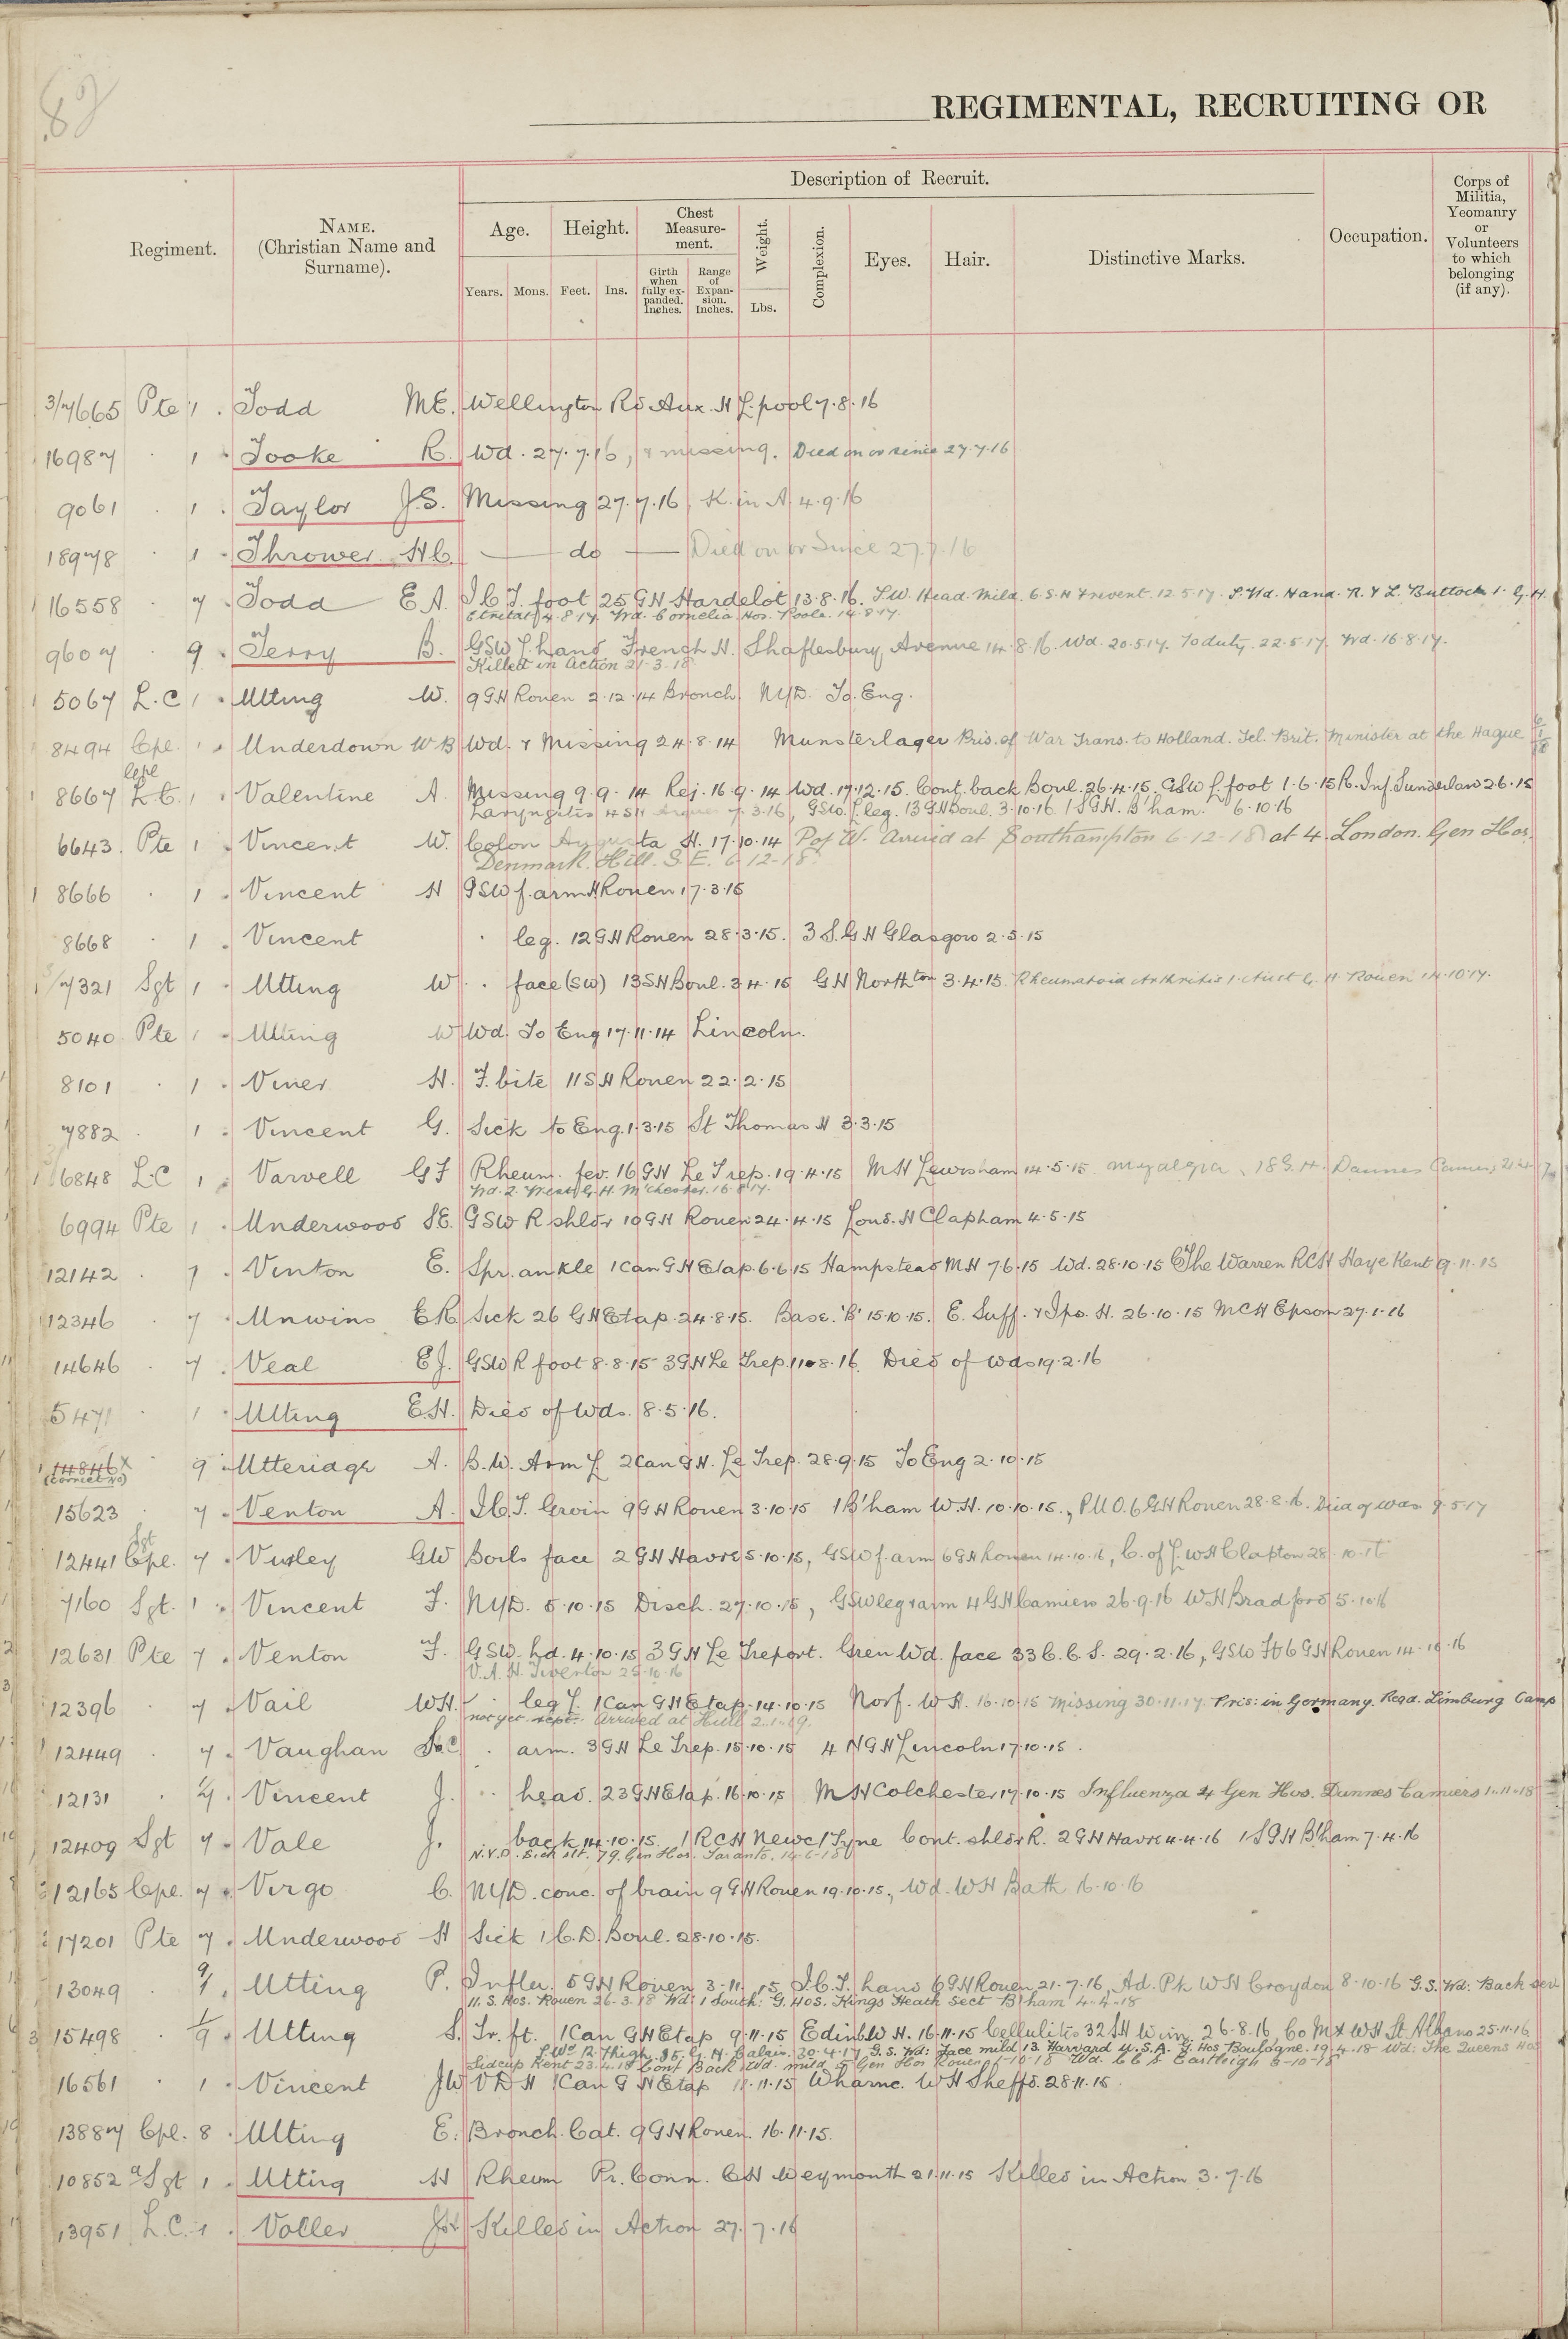 REGIMENTAL, RECRUITING OR
Regiment.
NAME.
(Christian Name and
Surname).
Description of Recruit.
Age.
Height.
Chest
Measure-
ment.
Weight.
Complexion.
Eyes.
Hair.
Distinctive Marks.
Occupation.
Corps of
Militia,
Yeomanry
or
Volunteers
to which
belonging
(if any).
Years.
Mons.
Feet.
Ins.
Girth
when
fully ex-
panded.
Inches.
Range
of
Expan-
sion.
Inches.
Lbs.
3/7665 Pte 1 . Todd M E. Wellington Rd Aux. H L'pool 7.8.16
16987 . 1 . Tooke R. Wd. 27.7.16, & missing. Died on or since 27.7.16
9061 . 1 . Taylor J.S. Missing 27.7.16, K. in A 4.9.16
18978 . 1 . Thrower H C. — do — Died on or Since 27.7.16
16558 . 7 . Todd E A. I C T. foot 25 G H Hardelot 13.8.16. S.W. Head. Mild. 6 S H Frevent. 12.5.17. S. Wd. Hand. R. & L. Buttock 1. G.H.
Etretat 4.8.17. Wd. Cornelia Hos. Poole. 14.8.17.
9607 9 . Terry B. GSW L. hand French H. Shaftesbury Avenue 14.8.16. Wd. 20.5.17. To duty. 22.5.17. Wd. 16.8.17.
Killed in Action 21.3.18
5067 L.C 1 . Utting W. 9 G H Rouen 2.12.14 Bronch. N/Y/D. To Eng.
8494 Cpl. 1 . Underdown W B Wd. & Missing 24.8.14 Munsterlager Pris. of War Trans. to Holland. Tel. Brit. Minister at the Hague
Cpl
8667 L.C. 1 . Valentine A. Missing 9.9.14 Rej. 16.9.14 Wd. 17.12.15. Cont. back Boul. 26.4.15. GSW L foot 1.6.15 R. Inf. Sunderland 2.6.15
Laryngitis 4 S H 7.3.16, GSW. L leg. 13 G H Boul. 3.10.16. 1 S G H. B'ham. 6.10.16
6643. Pte 1 . Vincent W. Colon Augusta H. 17.10.14 P of W. Arrived at Southampton 6-12-18 at 4. London. Gen Hos.
Denmark. Hill. S. E. 6-12-18.
8666 . 1 . Vincent H GSW f. arm H Rouen 17.3.15
8668 . 1 . Vincent . leg. 12 G H Rouen 28.3.15. 3 S. G H Glasgow 2.5.15
3/7321 Sgt 1 . Utting W . . face (SW) 13 S H Boul. 3.4.15 G H North'ton 3.4.15. Rheumatoid Arthritis 1. Aust G. H. Rouen 14.10.17.
5040 Pte 1 . Utting W Wd. To Eng 17.11.14 Lincoln.
8101 . 1 . Viner H. F. bite 11 S H Rouen 22.2.15
7882 . 1 . Vincent G. Sick to Eng. 1.3.15 St Thomas H 3.3.15
6848 L.C 1 . Varvell G F Rheum. fev. 16 G H Le Trep. 19.4.15 M H Lewisham 14.5.15 Myalgia, 18 G. H. Dannes Camiers
Wd. 2. West. G. H. M'chester. 16.8.17.
6994 Pte 1 . Underwood S E. GSW R shldr 10 G H Rouen 24.4.15 Lond. H Clapham 4.5.15
12142 . 7 . Vinton E. Spr. ankle 1 Can G H Etap. 6.6.15 Hampstead M H 7.6.15 Wd. 28.10.15 The Warren RCH Haye Kent 9.11.15
12346 . 7 . Unwins E R Sick 26 G H Etap. 24.8.15. Base. 'B' 15.10.15. E. Suff. & Ips. H. 26.10.15 M C H Epsom 27.1.16
14646 . 7 . Veal E J. GSW R foot 8.8.15 3 G H Le Trep. 11.8.16. Died of Wds 19.2.16
5471 . 1 . Utting E.H. Died of Wds. 8.5.16.
14846 x . 9 . Utteridge A. B.W. Arm L 2 Can G H. Le Trep. 28.9.15 To Eng 2.10.15
(Correct No)
15623 . 7 . Venton A. I.C.T. Groin 9 G H Rouen 3.10.15 1 B'ham W.H. 10.10.15., P.U.O. 6 G H Rouen 28.8.16. Died of wds 9.5.17
Sgt
12441 Cpl. 7 . Vurley G W Boils face 2 G H Havre 5.10.15, GSW f. arm 6 G H Rouen 14.10.16, C. of L. W H Clapton 28.10.16
7160 Sgt. 1 . Vincent F. N/Y/D. 5.10.15 Disch. 27.10.15, GSW leg & arm 4 G H Camiers 26.9.16 W H Bradford 5.10.16
12631 Pte 7 . Venton F. GSW. hd. 4.10.15 3 G H Le Treport. Gren Wd. face 33 C. C. S. 29.2.16, GSW Ft 6 G H Rouen 14.10.16
V. A. H. Tiverton 25.10.16
12396 . 7 . Vail W H. . . leg L. 1 Can G H Etap. 14.10.15 Norf. W H. 16.10.15 Missing 30.11.17. Pris: in Germany. Regd. Limburg Camp
not yet rept. Arrived at Hull 2.1.19.
12449 . 7 . Vaughan . arm. 3 G H Le Trep. 15.10.15 4 N G H Lincoln 17.10.15.
12131 . . Vincent J. . . head. 23 G H Etap. 16.10.15 M H Colchester 17.10.15 Influenza 4 Gen Hos. Dannes Camiers 1-11-18
12409 Sgt 7 . Vale J. back 14.10.15. 1 R C H Newc/Tyne Cont. shldr R. 2 G H Havre 4.4.16 1 S G H B'ham 7.4.16
N.Y.D. Sick slt. 79. Gen Hos. Taranto. 14-6-18
12165 Cpl. 7 . Virgo C. N/Y/D. conc. of brain 9 G H Rouen 19.10.15, Wd. W H Bath 16.10.16
17201 Pte 7 . Underwood H Sick 1 C.D. Boul. 28.10.15.
13049 . 9/1 . Utting P. Influ. 5 G H Rouen 3.11.15, I.C.T. hand 6 G H Rouen 21.7.16, Ad. Pk. W H Croydon 8.10.16 G.S. Wd: Back sev
11. S. Hos. Rouen 26.3.18 Wd: 1 South: G. Hos. Kings Heath Sect B'ham 4-4-18
15498 . 1/9 . Utting S. Tr. ft. 1 Can G H Etap 9.11.15 Edinb W H. 16.11.15 Cellulitis 32 S H Wim. 26.8.16, Co Mx W H St Albans 25.11.16
S. Wd. R. Thigh. 35. G. H. Calais. 30.4.17 G. S. Wd: Face mild 13 Harvard U.S.A. G. Hos Boulogne. 19.4.18 Wd: The Queens Hos
Sidcup Kent 23.4.18 Cont Back Wd. mild 5 Gen Hos Rouen 1-10-18 Wd. C C S Eastleigh 5-10-18
16561 . 1 . Vincent J W V D H 1 Can G H Etap 11.11.15 Wharnc. W H Sheffd. 28.11.15.
13887 Cpl. 8 . Utting E. Bronch. Cat. 9 G H Rouen. 16.11.15.
10852 a/Sgt 1 . Utting H Rheum Pr. Conn. C H Weymouth 21.11.15 Killed in Action 3.7.16
13951 L.C. 1 . Voller Killed in Action 27.7.16